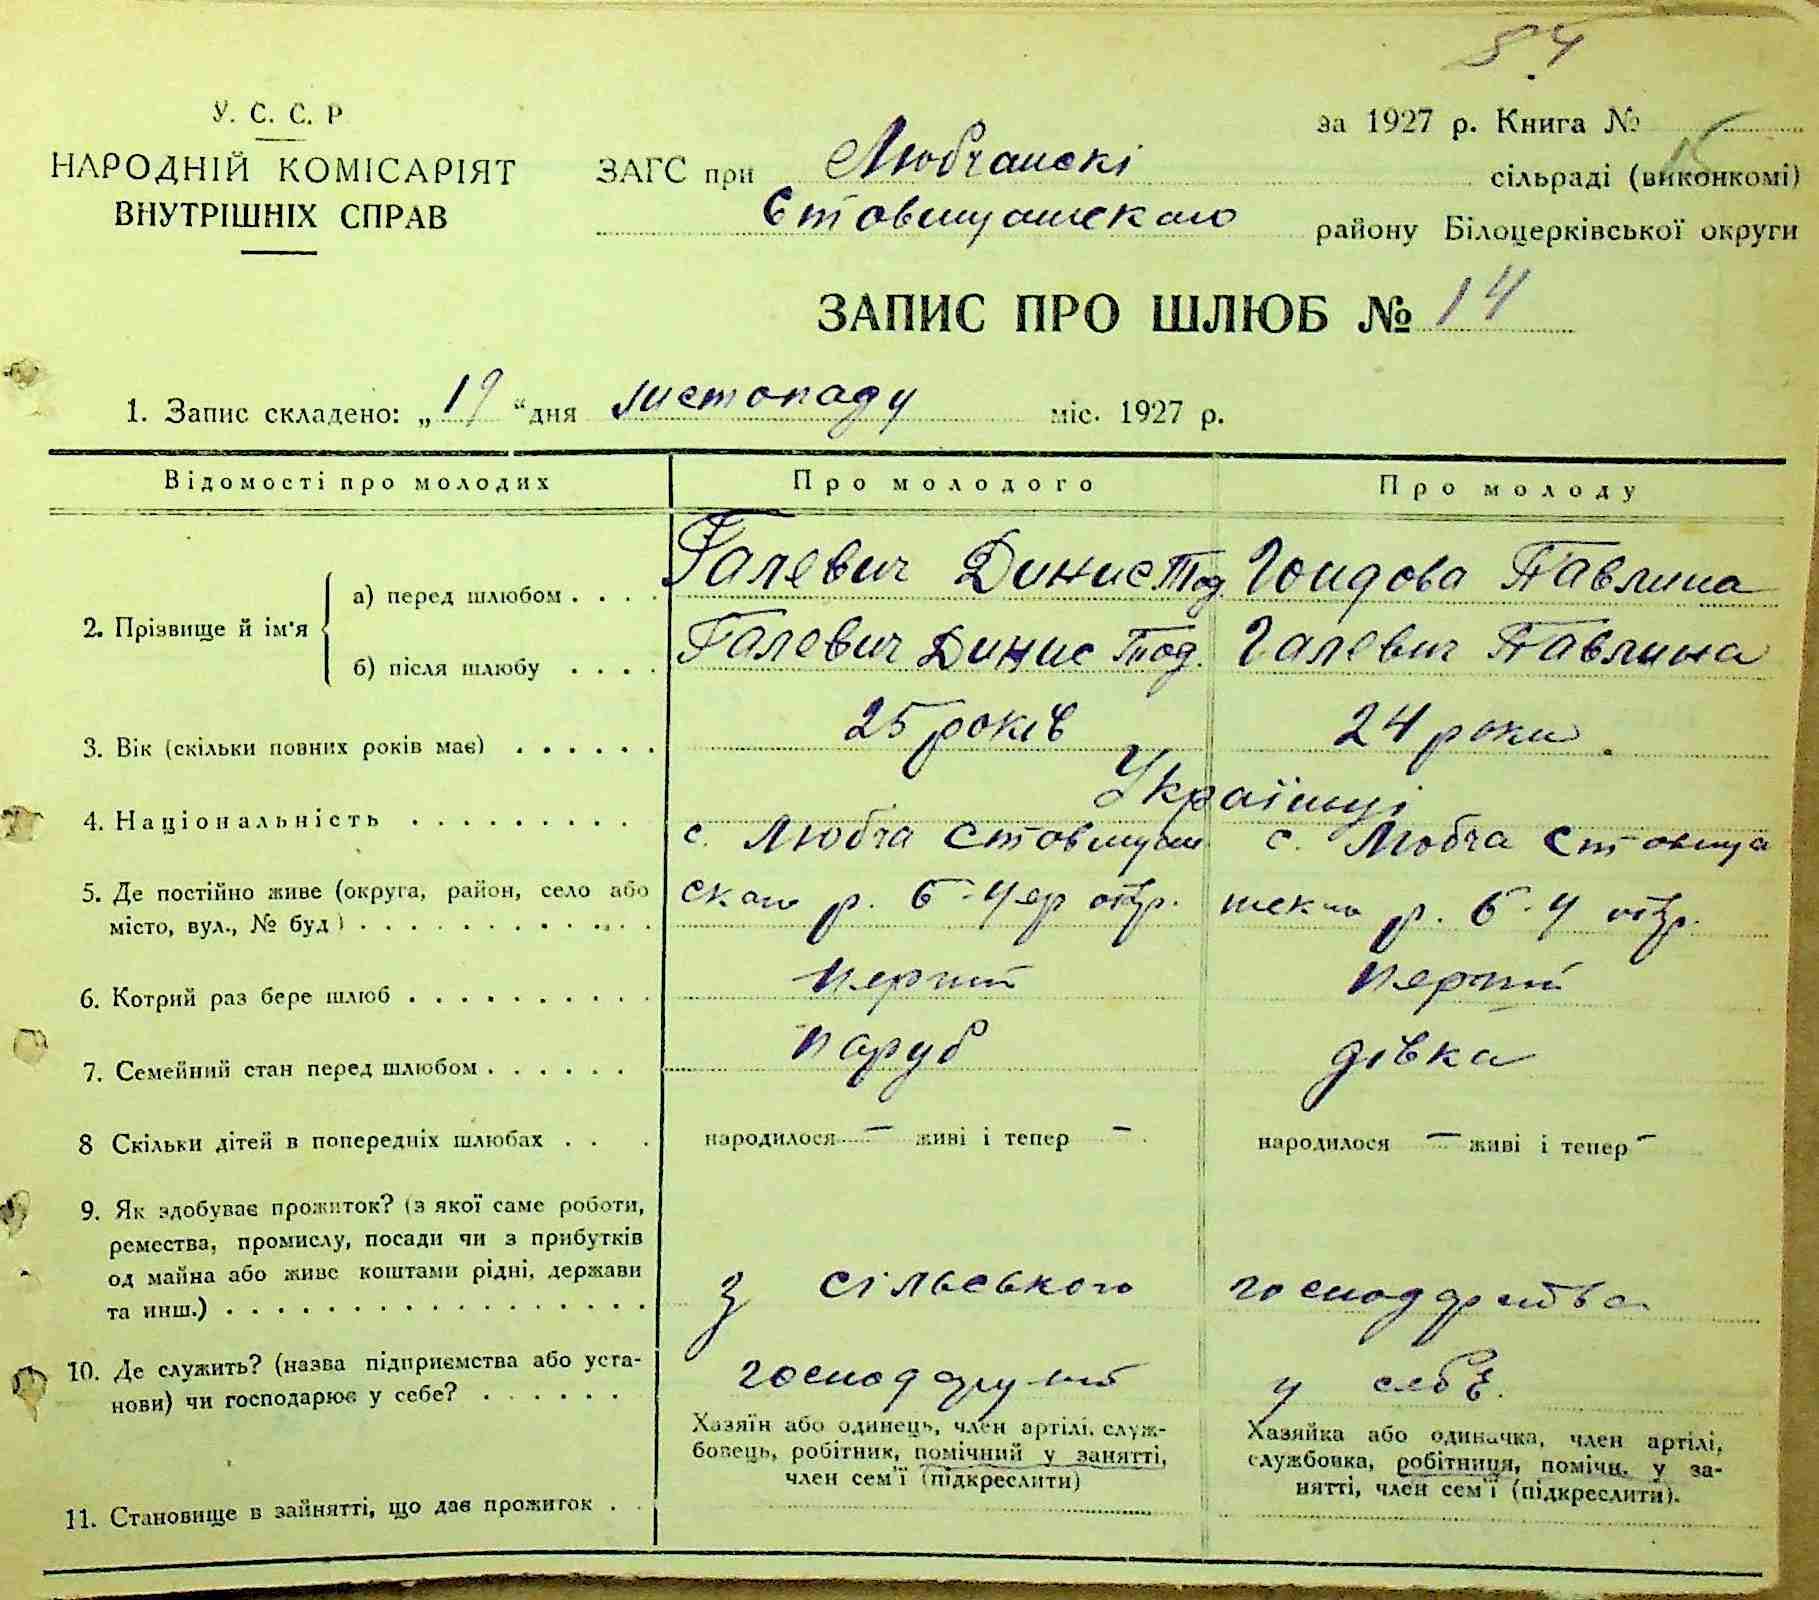 54
У. С. С. Р
НАРОДНІЙ КОМІСАРІЯТ
ВНУТРІШНІХ СПРАВ
за 1927 р. Книга №
ЗАГС при Любчанскі сільраді (виконкомі)
району Білоцерківської округи
ЗАПИС ПРО ШЛЮБ № 14
1. Запис складено: „19“ дня листопаду міс. 1927 р.
Відомості про молодих Про молодого Про молоду
2. Прізвище й ім'я
а) перед шлюбом . . . . Галевич Динис Тод. Павлина
б) після шлюбу . . . . Галевич Динис Тод. Галевич Павлина
3. Вік (скільки повних років має) . . . . . . 25 років 24 роки
4. Національність . . . . . . . . . Українці
с. Любча с. Любча
5. Де постійно живе (округа, район, село або
місто, вул., № буд) . . . . . . . . . . . . р. Б-Цер окр. р. Б-Ц окр.
6. Котрий раз бере шлюб . . . . . . . . . . перший перший
7. Семейний стан перед шлюбом . . . . . . паруб дівка
8 Скільки дітей в попередніх шлюбах . . . народилося — живі і тепер — народилося — живі і тепер —
9. Як здобуває прожиток? (з якої саме роботи,
ремества, промислу, посади чи з прибутків
од майна або живе коштами рідні, держави
та инш.) . . . . . . . . . . . . . . . . . . з сільського господарства
10. Де служить? (назва підприємства або уста-
нови) чи господарює у себе? . . . . . . у себе.
Хазяїн або одинець, член артілі, служ-
бовець, робітник, помічний у занятті,
член сем'ї (підкреслити)
Хазяйка або одиначка, член артілі,
службовка, робітниця, помічн. у за-
нятті, член сем'ї (підкреслити).
11. Становище в зайнятті, що дає прожиток . .